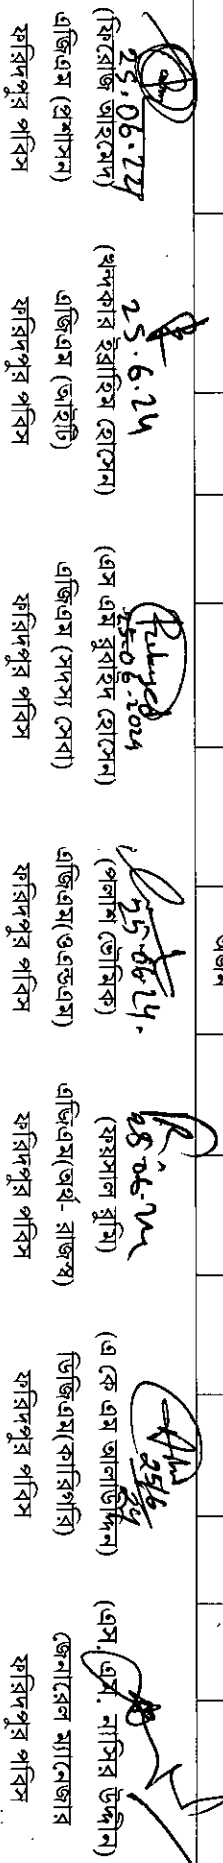 25.06.24
(ফিরোজ আহমেদ)
এজিএম (প্রশাসন)
ফরিদপুর পবিস
25.6.24
(খন্দকার ইব্রাহিম হোসেন)
এজিএম (আইটি)
ফরিদপুর পবিস
25-06-2024
(এস এম জুবাইদ হোসেন)
এজিএম (সদস্য সেবা)
ফরিদপুর পবিস
25.06.24.
(পলাশ ভৌমিক)
এজিএম(ওএন্ডএম)
ফরিদপুর পবিস
25.06.24
(ফয়সাল রুমি)
এজিএম(অর্থ- রাজস্ব)
ফরিদপুর পবিস
25/6/24
(এ কে এম আলাউদ্দিন)
ডিজিএম(কারিগরি)
ফরিদপুর পবিস
(এস.এম. নাসির উদ্দীন)
জেনারেল ম্যানেজার
ফরিদপুর পবিস